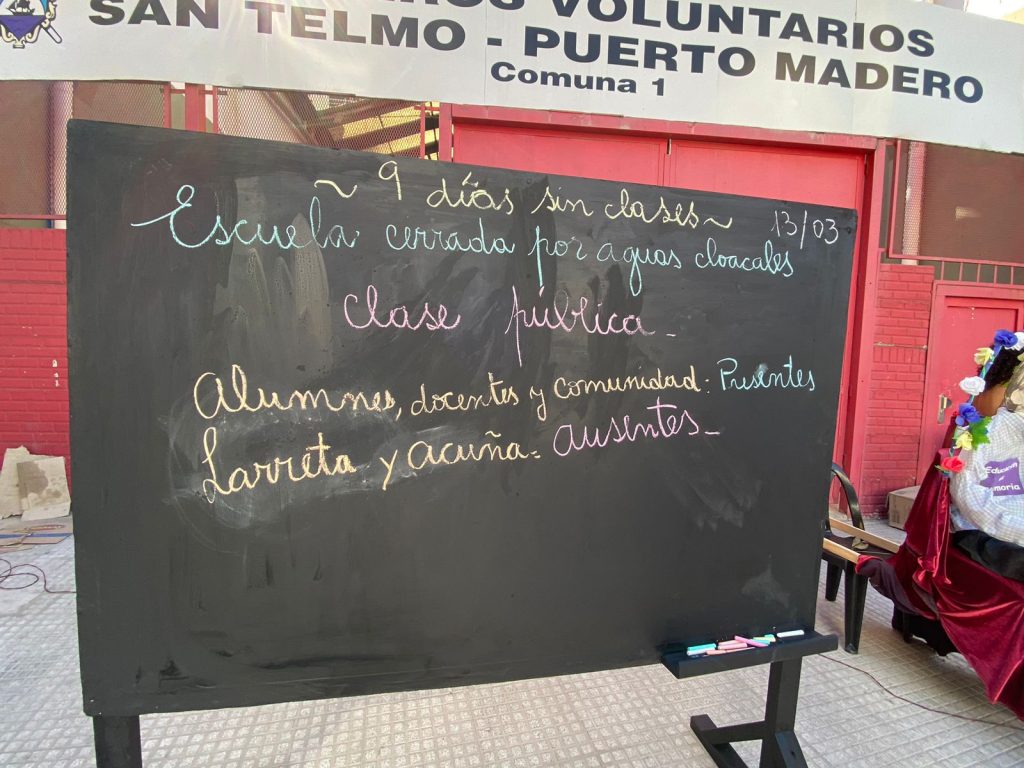 VOLUNTARIOS
SAN TELMO - PUERTO MADERO
Comuna 1
~ 9 días sin clases ~
13/03
Escuela cerrada por aguas cloacales
Clase pública -
Alumnes, docentes y comunidad: Presentes
Larreta y Acuña: ausentes -
Educación